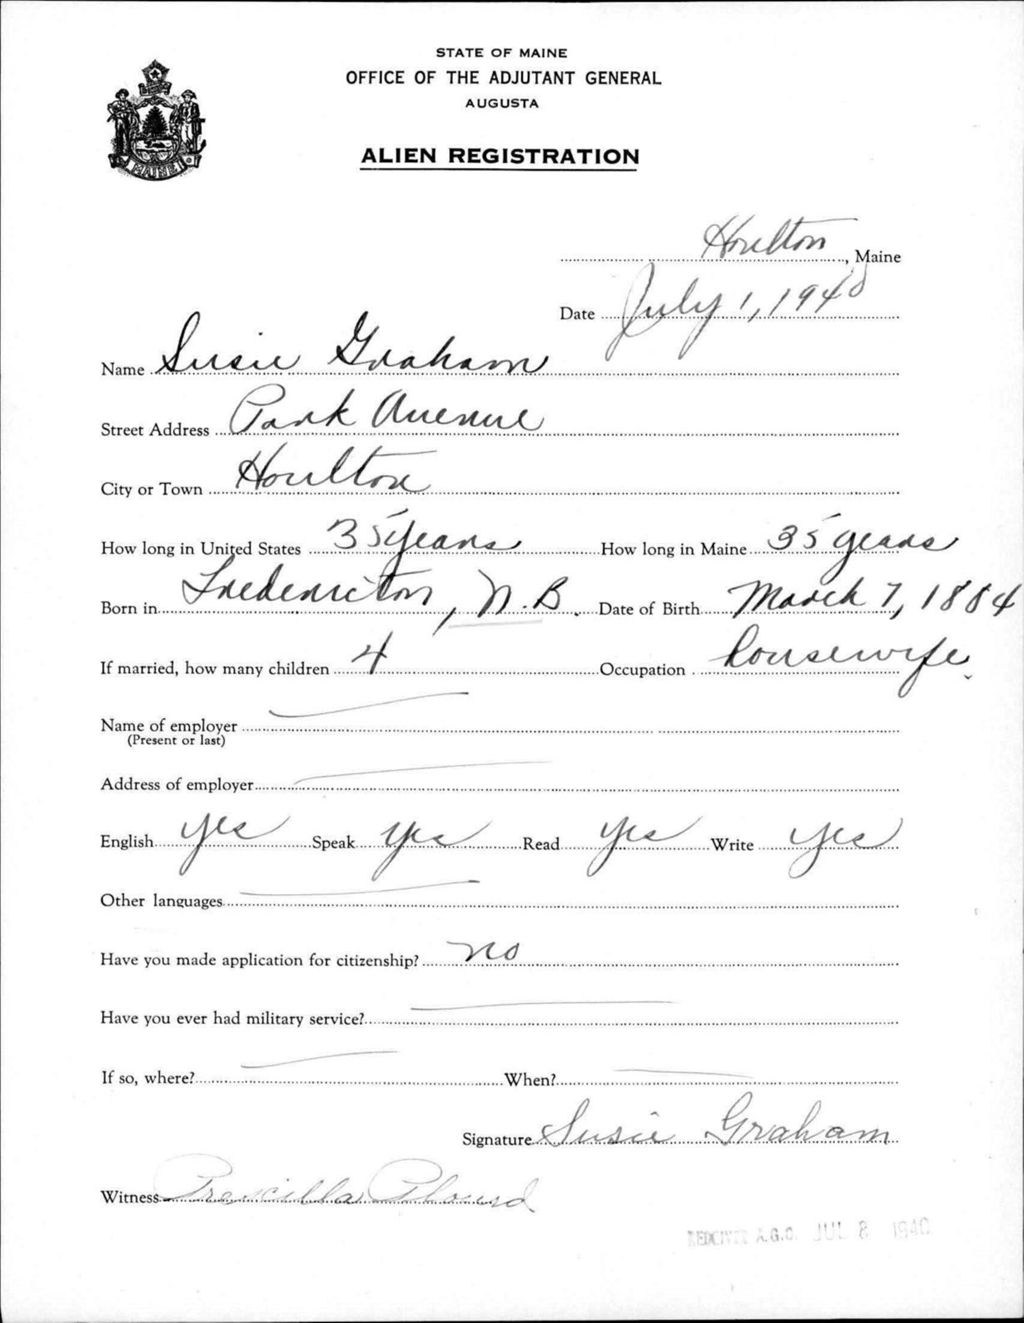 STATE OF MAINE
OFFICE OF THE ADJUTANT GENERAL
AUGUSTA
ALIEN REGISTRATION
MAINE
Houlton, Maine
Date July 1, 1940
Name Susie Graham
Street Address Park Avenue
City or Town Houlton
How long in United States 35 years How long in Maine 35 years
Born in Fredericton, N.B. Date of Birth March 7, 1884
If married, how many children 4 Occupation housewife
Name of employer
(Present or last)
Address of employer
English yes Speak yes Read yes Write yes
Other languages
Have you made application for citizenship? no
Have you ever had military service?
If so, where? When?
Signature Susie Graham
Witness Prescilla Plourd
A.G.O. JUL 8 1940